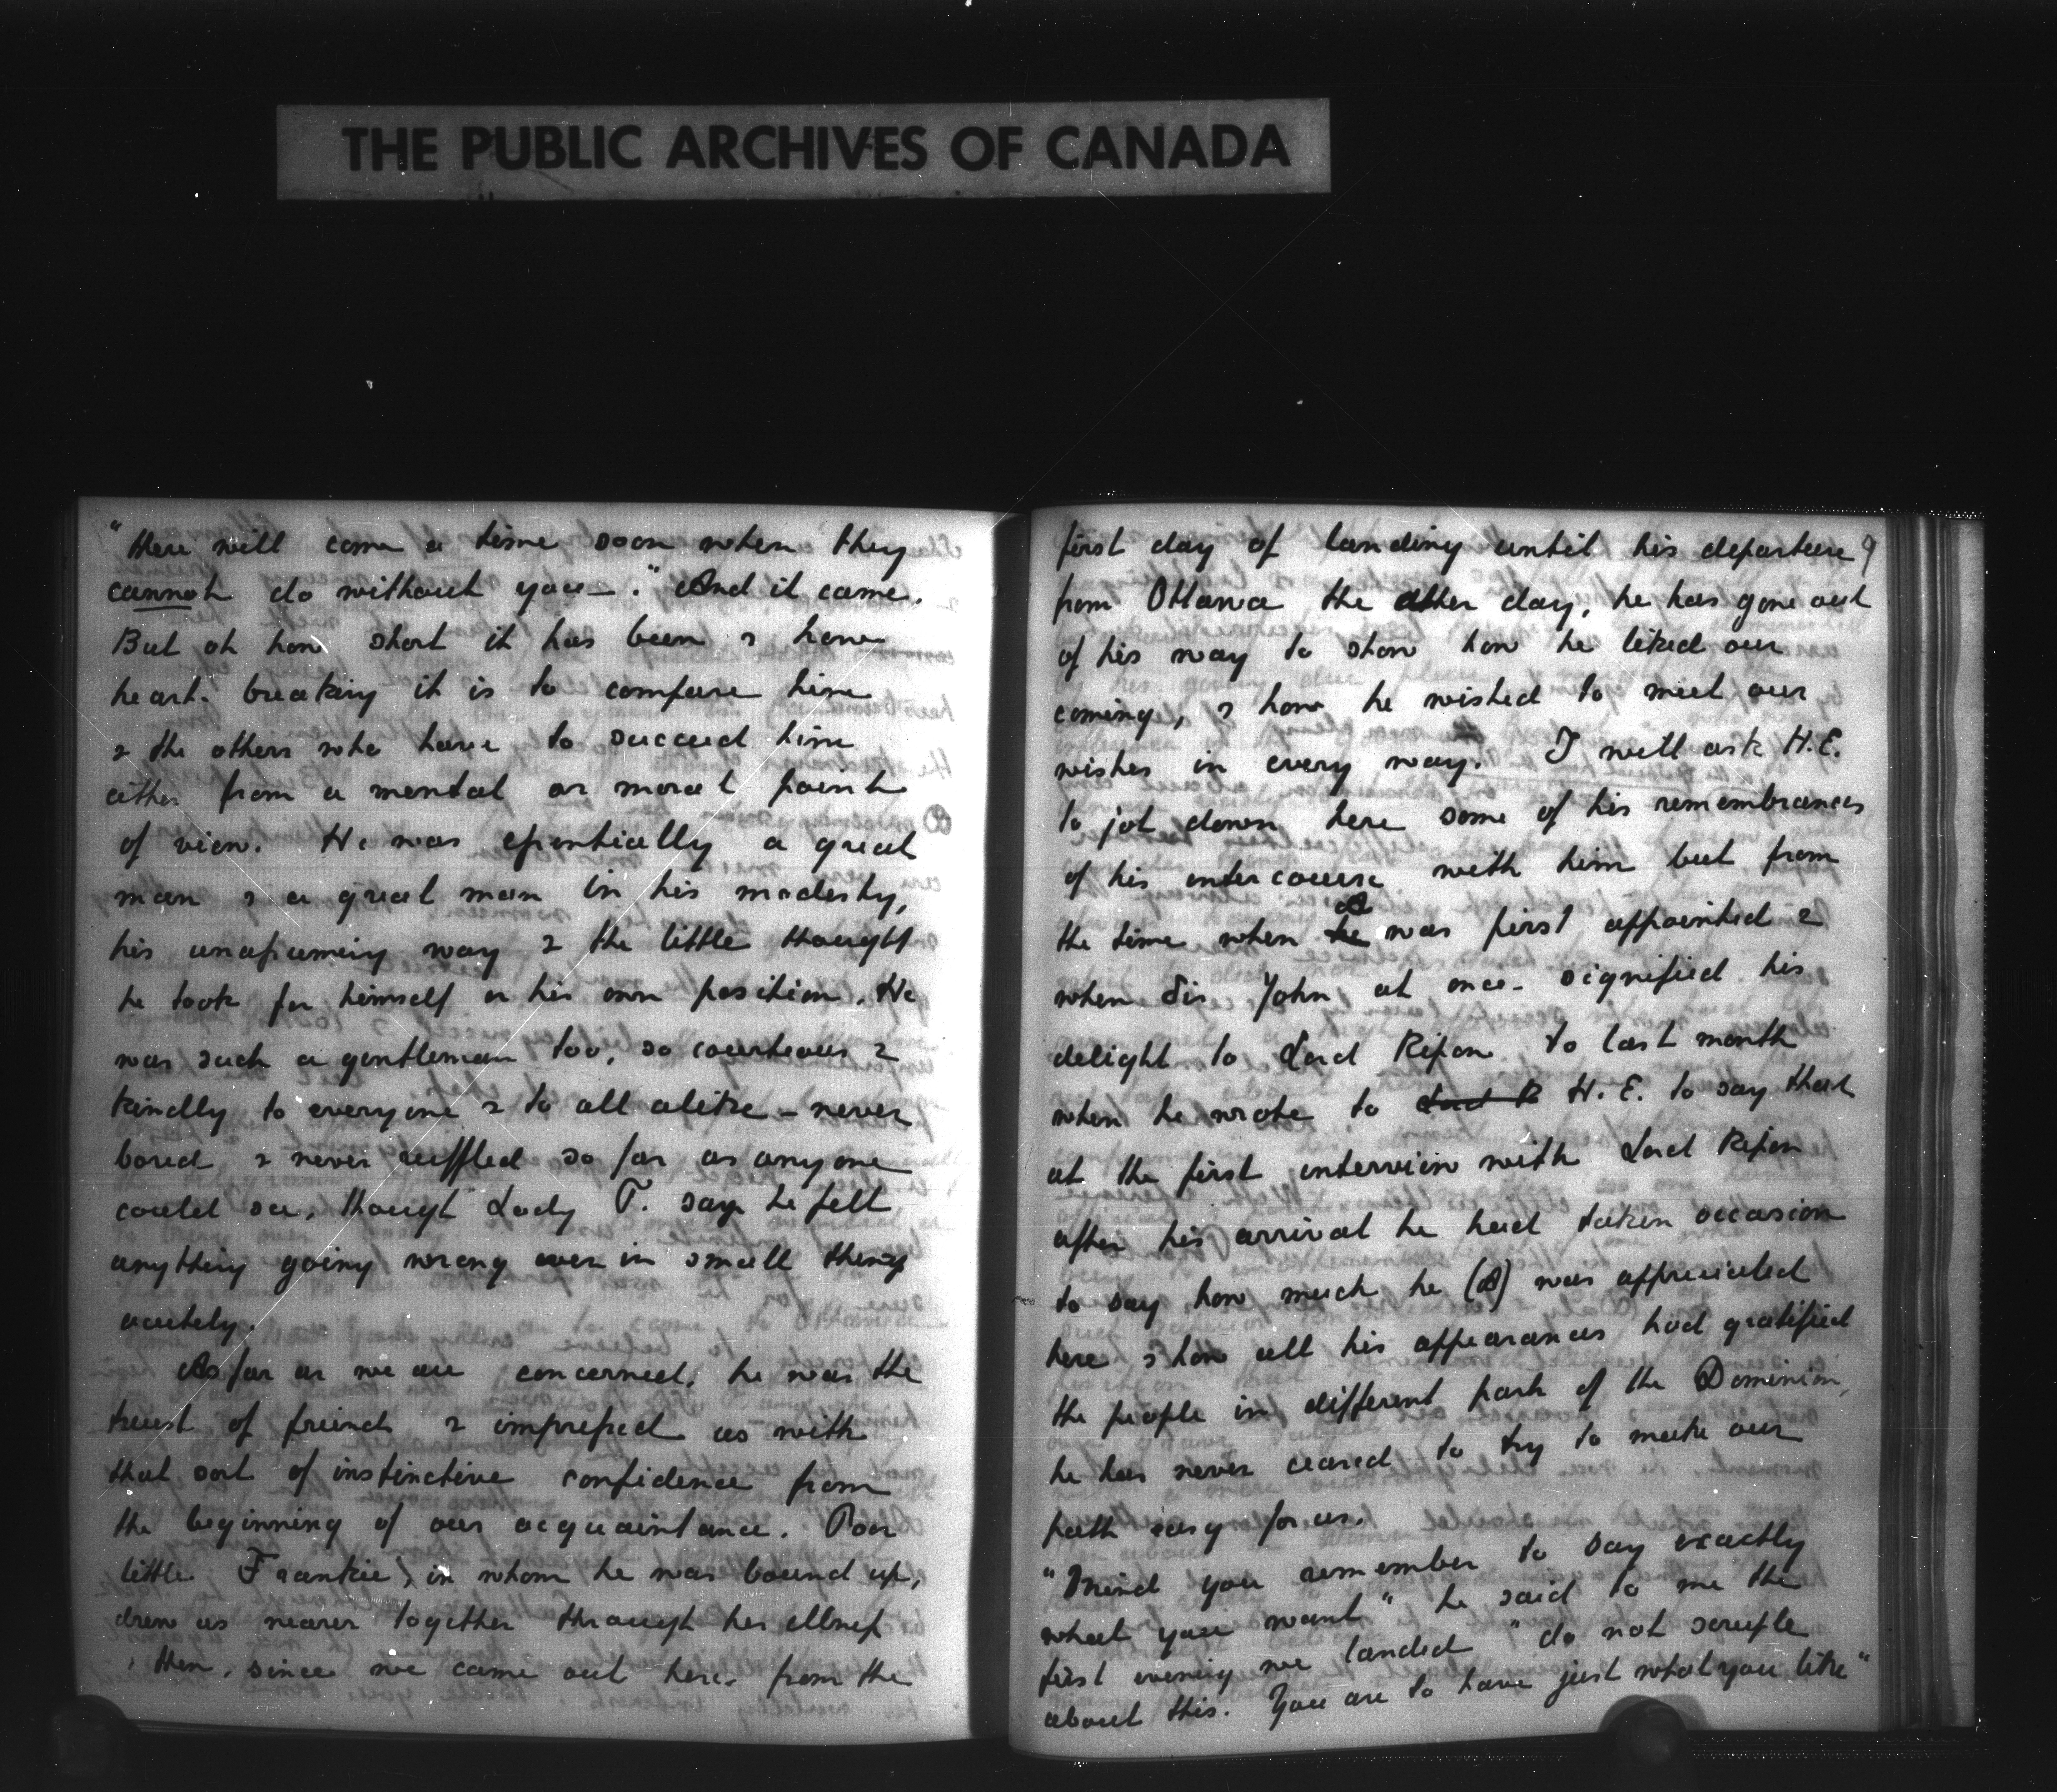 THE PUBLIC ARCHIVES OF CANADA
"there will come a time soon when they
cannot do without you—." And it came.
But oh how short it has been & how
heart-breaking it is to compare him
& the others who have to succeed him
either from a mental or moral point
of view. He was essentially a great
man & a great man in his modesty,
his unassuming way & the little thought
he took for himself or his own position. He
was such a gentleman too, so courteous &
kindly to everyone & to all alike – never
bored & never ruffled so far as anyone
could see, though Lady T. says he felt
anything going wrong even in small things
acutely.
As far as we are concerned, he was the
truest of friends & impressed us with
that sort of instinctive confidence from
the beginning of our acquaintance. Poor
little Frankie, in whom he was bound up,
drew us nearer together through her illness
& then, since we came out here, from the
first day of landing until his departure 9
from Ottawa the other day, he has gone out
of his way to show how he liked our
coming, & how he wished to meet our
wishes in every way. I will ask H.E.
to jot down here some of his remembrances
of his intercourse with him but from
the time when he A was first appointed &
when Sir John at once signified his
delight to Lord Ripon to last month
when he wrote to Lord R H.E. to say that
at the first interview with Lord Ripon
after his arrival he had taken occasion
to say how much he (A) was appreciated
here & how all his appearances had gratified
the people in different parts of the Dominion,
he has never ceased to try to make our
path easy for us.
"Mind you remember to say exactly
what you want" he said to me the
first evening we landed "do not scruple
about this. You are to have just what you like"